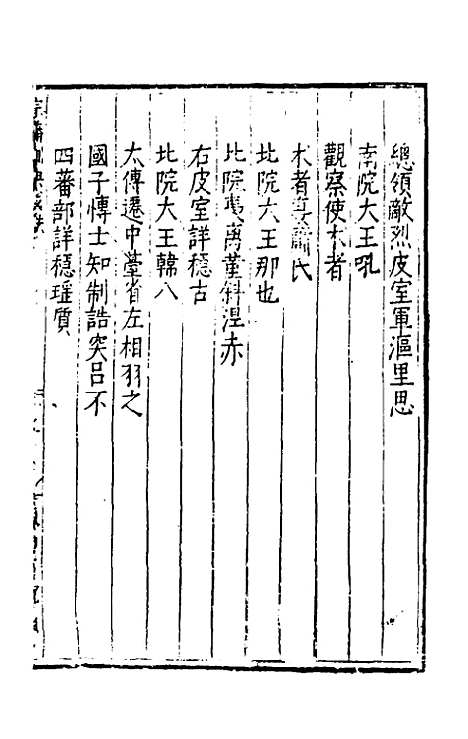 總領敵烈皮室軍漚里思
南院大王吼
觀察使木者
木者妻蕭氏
北院大王那也
北院夷离堇斜涅赤
右皮室詳穏古
北院大王韓八
太傅遷中臺省左相羽之
國子博士知制誥突吕不
四蕃部詳穏瑶質